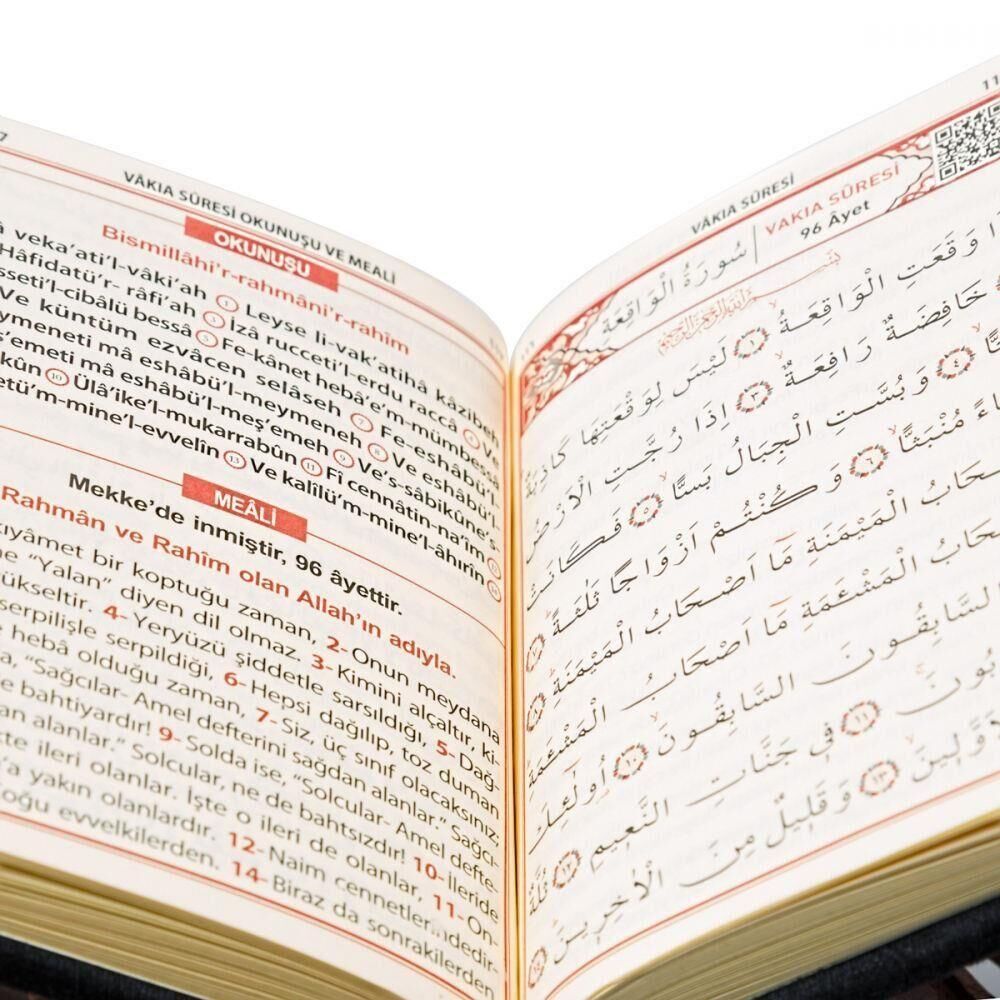 7
VÂKIA SÛRESİ OKUNUŞU VE MEALİ
OKUNUŞU
Bismillâhi'r-rahmâni'r-rahîm
veka'ati'l-vâki'ah ① Leyse li-vak'atihâ kâzibeh
Hâfidatü'r- râfi'ah ③ İzâ rucceti'l-erdu raccâ ④ Ve
sseti'l-cibâlü bessâ ⑤ Fe-kânet hebâ'e'm-mümbessâ
Ve küntüm ezvâcen selâseh ⑦ Fe-eshâbü'l-
ymeneti mâ eshâbü'l-meymeneh ⑧ Ve eshâbü'l-
ş'emeti mâ eshâbü'l-meş'emeh ⑨ Ve's-sâbikûne's-
kûn ⑩ Ülâ'ike'l-mukarrabûn ⑪ Fî cennâtin-na'îm ⑫
etü'm-mine'l-evvelîn ⑬ Ve kalîlü'm-mine'l-âhırîn ⑭
MEÂLİ
Mekke'de inmiştir, 96 âyettir.
Rahmân ve Rahîm olan Allah'ın adıyla.
kıyâmet bir koptuğu zaman, 2- Onun meydana
ne "Yalan" diyen dil olmaz. 3- Kimini alçaltır, ki-
yükseltir. 4- Yeryüzü şiddetle sarsıldığı, 5- Dağ-
serpilişle serpildiği, 6- Hepsi dağılıp, toz duman
e hebâ olduğu zaman, 7- Siz, üç sınıf olacaksınız;
a, "Sağcılar- Amel defterini sağdan alanlar." Sağcı-
e bahtiyardır! 9- Solda ise, "Solcular- Amel defte-
an alanlar." Solcular, ne de bahtsızdır! 10- İleride
te ileri olanlar. İşte o ileri de olanlar, 11- On-
'a yakın olanlardır. 12- Naim cennetlerindedir-
oğu evvelkilerden. 14- Biraz da sonrakilerden
11
VÂKIA SÛRESİ
سُورَةُ الْوَاقِعَةِ
VAKIA SÛRESİ
96 Âyet
بِسْمِ اللّٰهِ الرَّحْمٰنِ الرَّحِيمِ
وَقَعَتِ الْوَاقِعَةُ ﴿١﴾ لَيْسَ لِوَقْعَتِهَا كَاذِبَةٌ
خَافِضَةٌ رَافِعَةٌ ﴿٣﴾ اِذَا رُجَّتِ الْاَرْضُ
﴿٤﴾ وَبُسَّتِ الْجِبَالُ بَسًّا ﴿٥﴾ فَكَانَتْ
مُنْبَثًّا ﴿٦﴾ وَكُنْتُمْ اَزْوَاجًا ثَلٰثَةً ﴿٧﴾
الْمَيْمَنَةِ مَٓا اَصْحَابُ الْمَيْمَنَةِ ﴿٨﴾
الْمَشْئَمَةِ مَٓا اَصْحَابُ الْمَشْئَمَةِ
السَّابِقُونَ السَّابِقُونَ ﴿١٠﴾ اُولٰٓئِكَ
﴿١١﴾ فِي جَنَّاتِ النَّعِيمِ ﴿١٢﴾ ثُلَّةٌ
﴿١٣﴾ وَقَلِيلٌ مِنَ الْاٰخِرِينَ ﴿١٤﴾